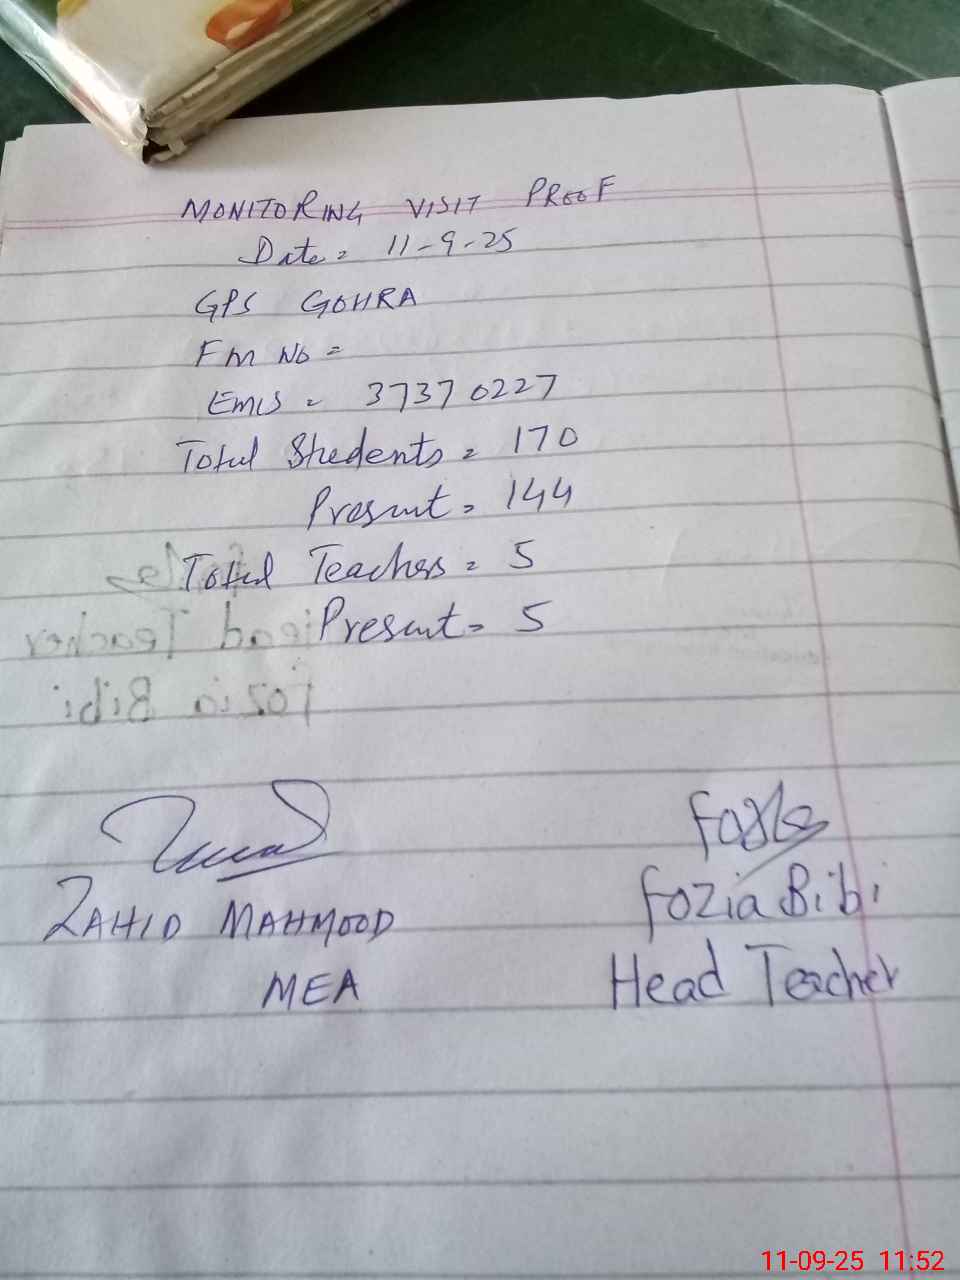 MONITORING VISIT PROOF
Date = 11-9-25
GPS GOHRA
FM No =
EMIS = 37370227
Total Students = 170
Present = 144
Total Teachers = 5
Present = 5
Head Teacher
Fozia Bibi
ZAHID MAHMOOD
MEA
Fozia Bibi
Head Teacher
11-09-25 11:52